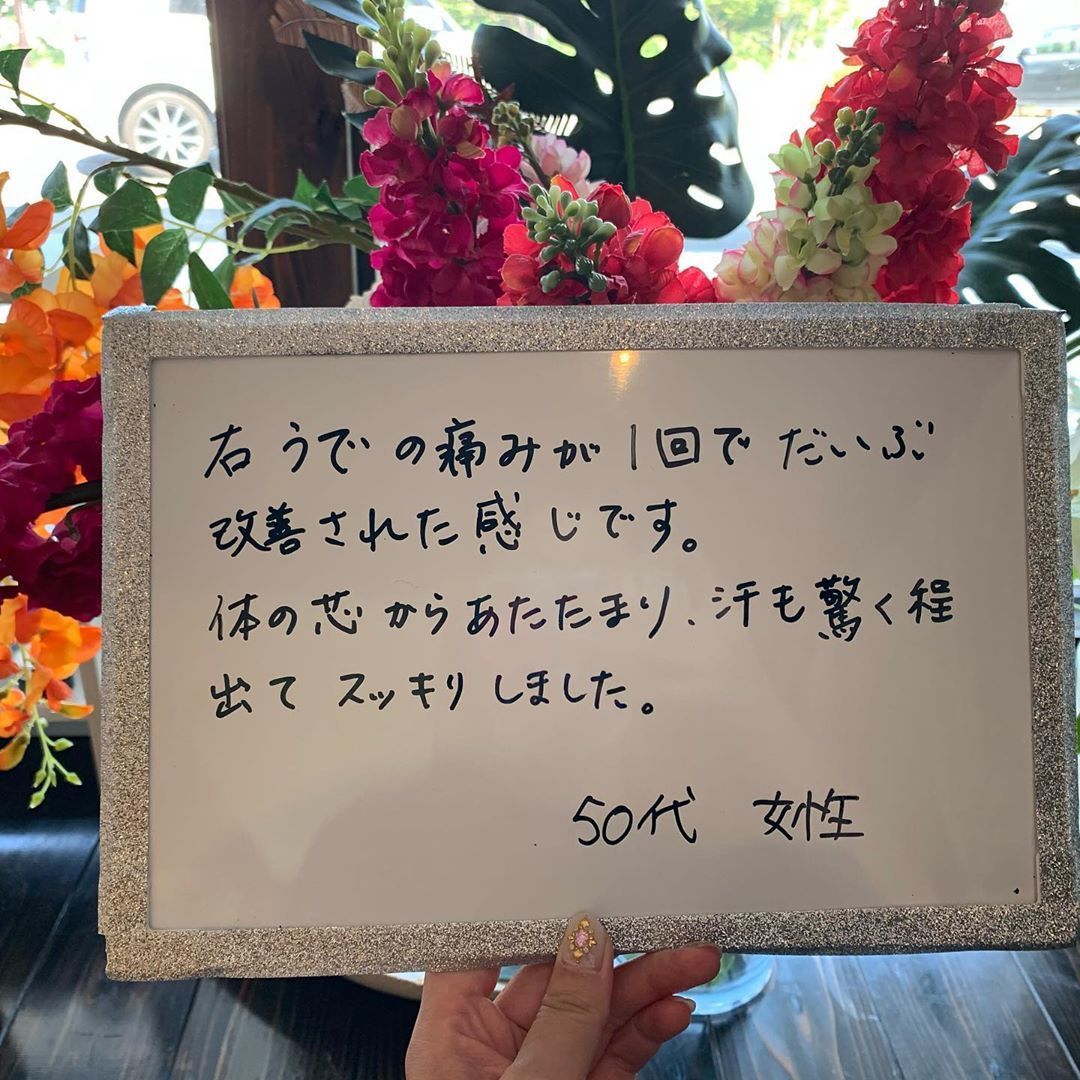 右うでの痛みが1回でだいぶ
改善された感じです。
体の芯からあたたまり、汗も驚く程
出てスッキリしました。
50代 女性